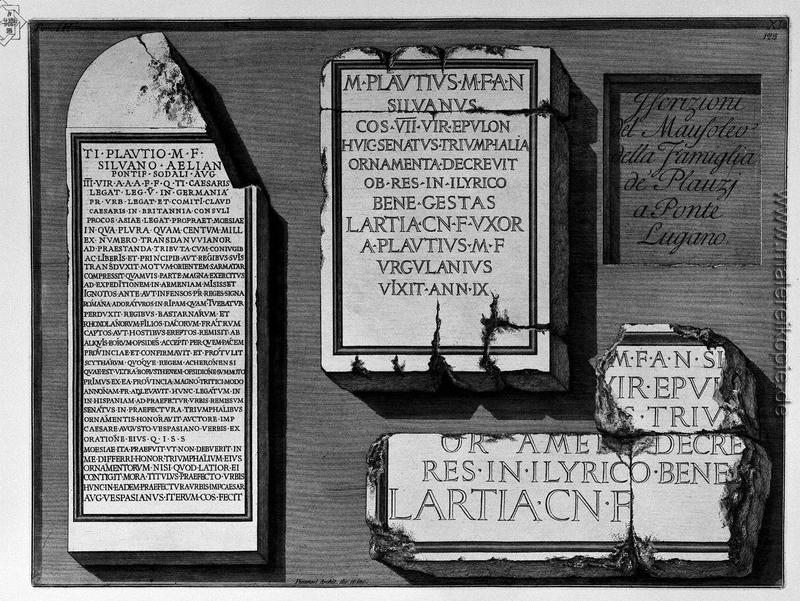 TI·PLAVTIO·M·F·
SILVANO·AELIAN
PONTIF·SODALI·AVG
III·VIR·A·A·A·F·F·Q·TI·CAESARIS
LEGAT·LEG·V·IN·GERMANIA
PR·VRB·LEGAT·ET·COMITI·CLAVD
CAESARIS·IN·BRITANNIA·CONSVLI
PROCOS·ASIAE·LEGAT·PROPRAET·MOESIAE
IN·QVA·PLVRA·QVAM·CENTVM·MILL
EX·NVMERO·TRANSDANVVIANOR
AD·PRAESTANDA·TRIBVTA·CVM·CONIVGIB
AC·LIBERIS·ET·PRINCIPIB·AVT·REGIBVS·SVIS
TRANSDVXIT·MOTVM·ORIENTEM·SARMATAR
COMPRESSIT·QVAMVIS·PARTE·MAGNA·EXERCITVS
AD·EXPEDITIONEM·IN·ARMENIAM·MISISSET
IGNOTOS·ANTE·AVT·INFENSOS·PR·REGES·SIGNA
ROMANA·ADORATVROS·IN·RIPAM·QVAM·TVEBATVR
PERDVXIT·REGIBVS·BASTARNARVM·ET
RHOXOLANORVM·FILIOS·DACORVM·FRATRVM
CAPTOS·AVT·HOSTIBVS·EREPTOS·REMISIT·AB
ALIQVIS·EORVM·OPSIDES·ACCEPIT·PER·QVEM·PACEM
PROVINCIAE·ET·CONFIRMAVIT·ET·PROTVLIT
SCYTHARVM·QVOQVE·REGEM·ACHERONENSI
QVAE·EST·VLTRA·BORVSTHENEM·OPSIDIONE·SVMMOTO
PRIMVS·EX·EA·PROVINCIA·MAGNO·TRITICI·MODO
ANNONAM·P·R·ADLEVAVIT·HVNC·LEGATVM·IN
IN·HISPANIAM·AD·PRAEFECTVR·VRBIS·REMISSVM
SENATVS·IN·PRAEFECTVRA·TRIVMPHALIBVS
ORNAMENTIS·HONORAVIT·AVCTORE·IMP
CAESARE·AVGVSTO·VESPASIANO·VERBIS·EX
ORATIONE·EIVS·Q·I·S·S
MOESIAE·ITA·PRAEFVIT·VT·NON·DEBVERIT·IN
ME·DIFFERRI·HONOR·TRIVMPHALIVM·EIVS
ORNAMENTORVM·NISI·QVOD·LATIOR·EI
CONTIGIT·MORA·TITVLVS·PRAEFECTO·VRBIS
HVNC·IN·EADEM·PRAEFECTVRA·VRBIS·IMP·CAESAR
AVG·VESPASIANVS·ITERVM·COS·FECIT
M·PLAVTIVS·M·F·A·N
SILVANVS
COS·VII·VIR·EPVLON
HVIC·SENATVS·TRIVMPHALIA
ORNAMENTA·DECREVIT
OB·RES·IN·ILYRICO
BENE·GESTAS
LARTIA·CN·F·VXOR
A·PLAVTIVS·M·F
VRGVLANIVS
VIXIT·ANN·IX
128
Iscrizioni
del Mausoleo
della Famiglia
de' Plauzj
a Ponte
Lugano.
M·F·A·N·SI
VIR·EPV
S·TRIV
OR AMEN DECRE
RES·IN·ILYRICO·BENE
LARTIA·CN·F
Piranesi Archit. dis. et inc.
www.malereikopie.de